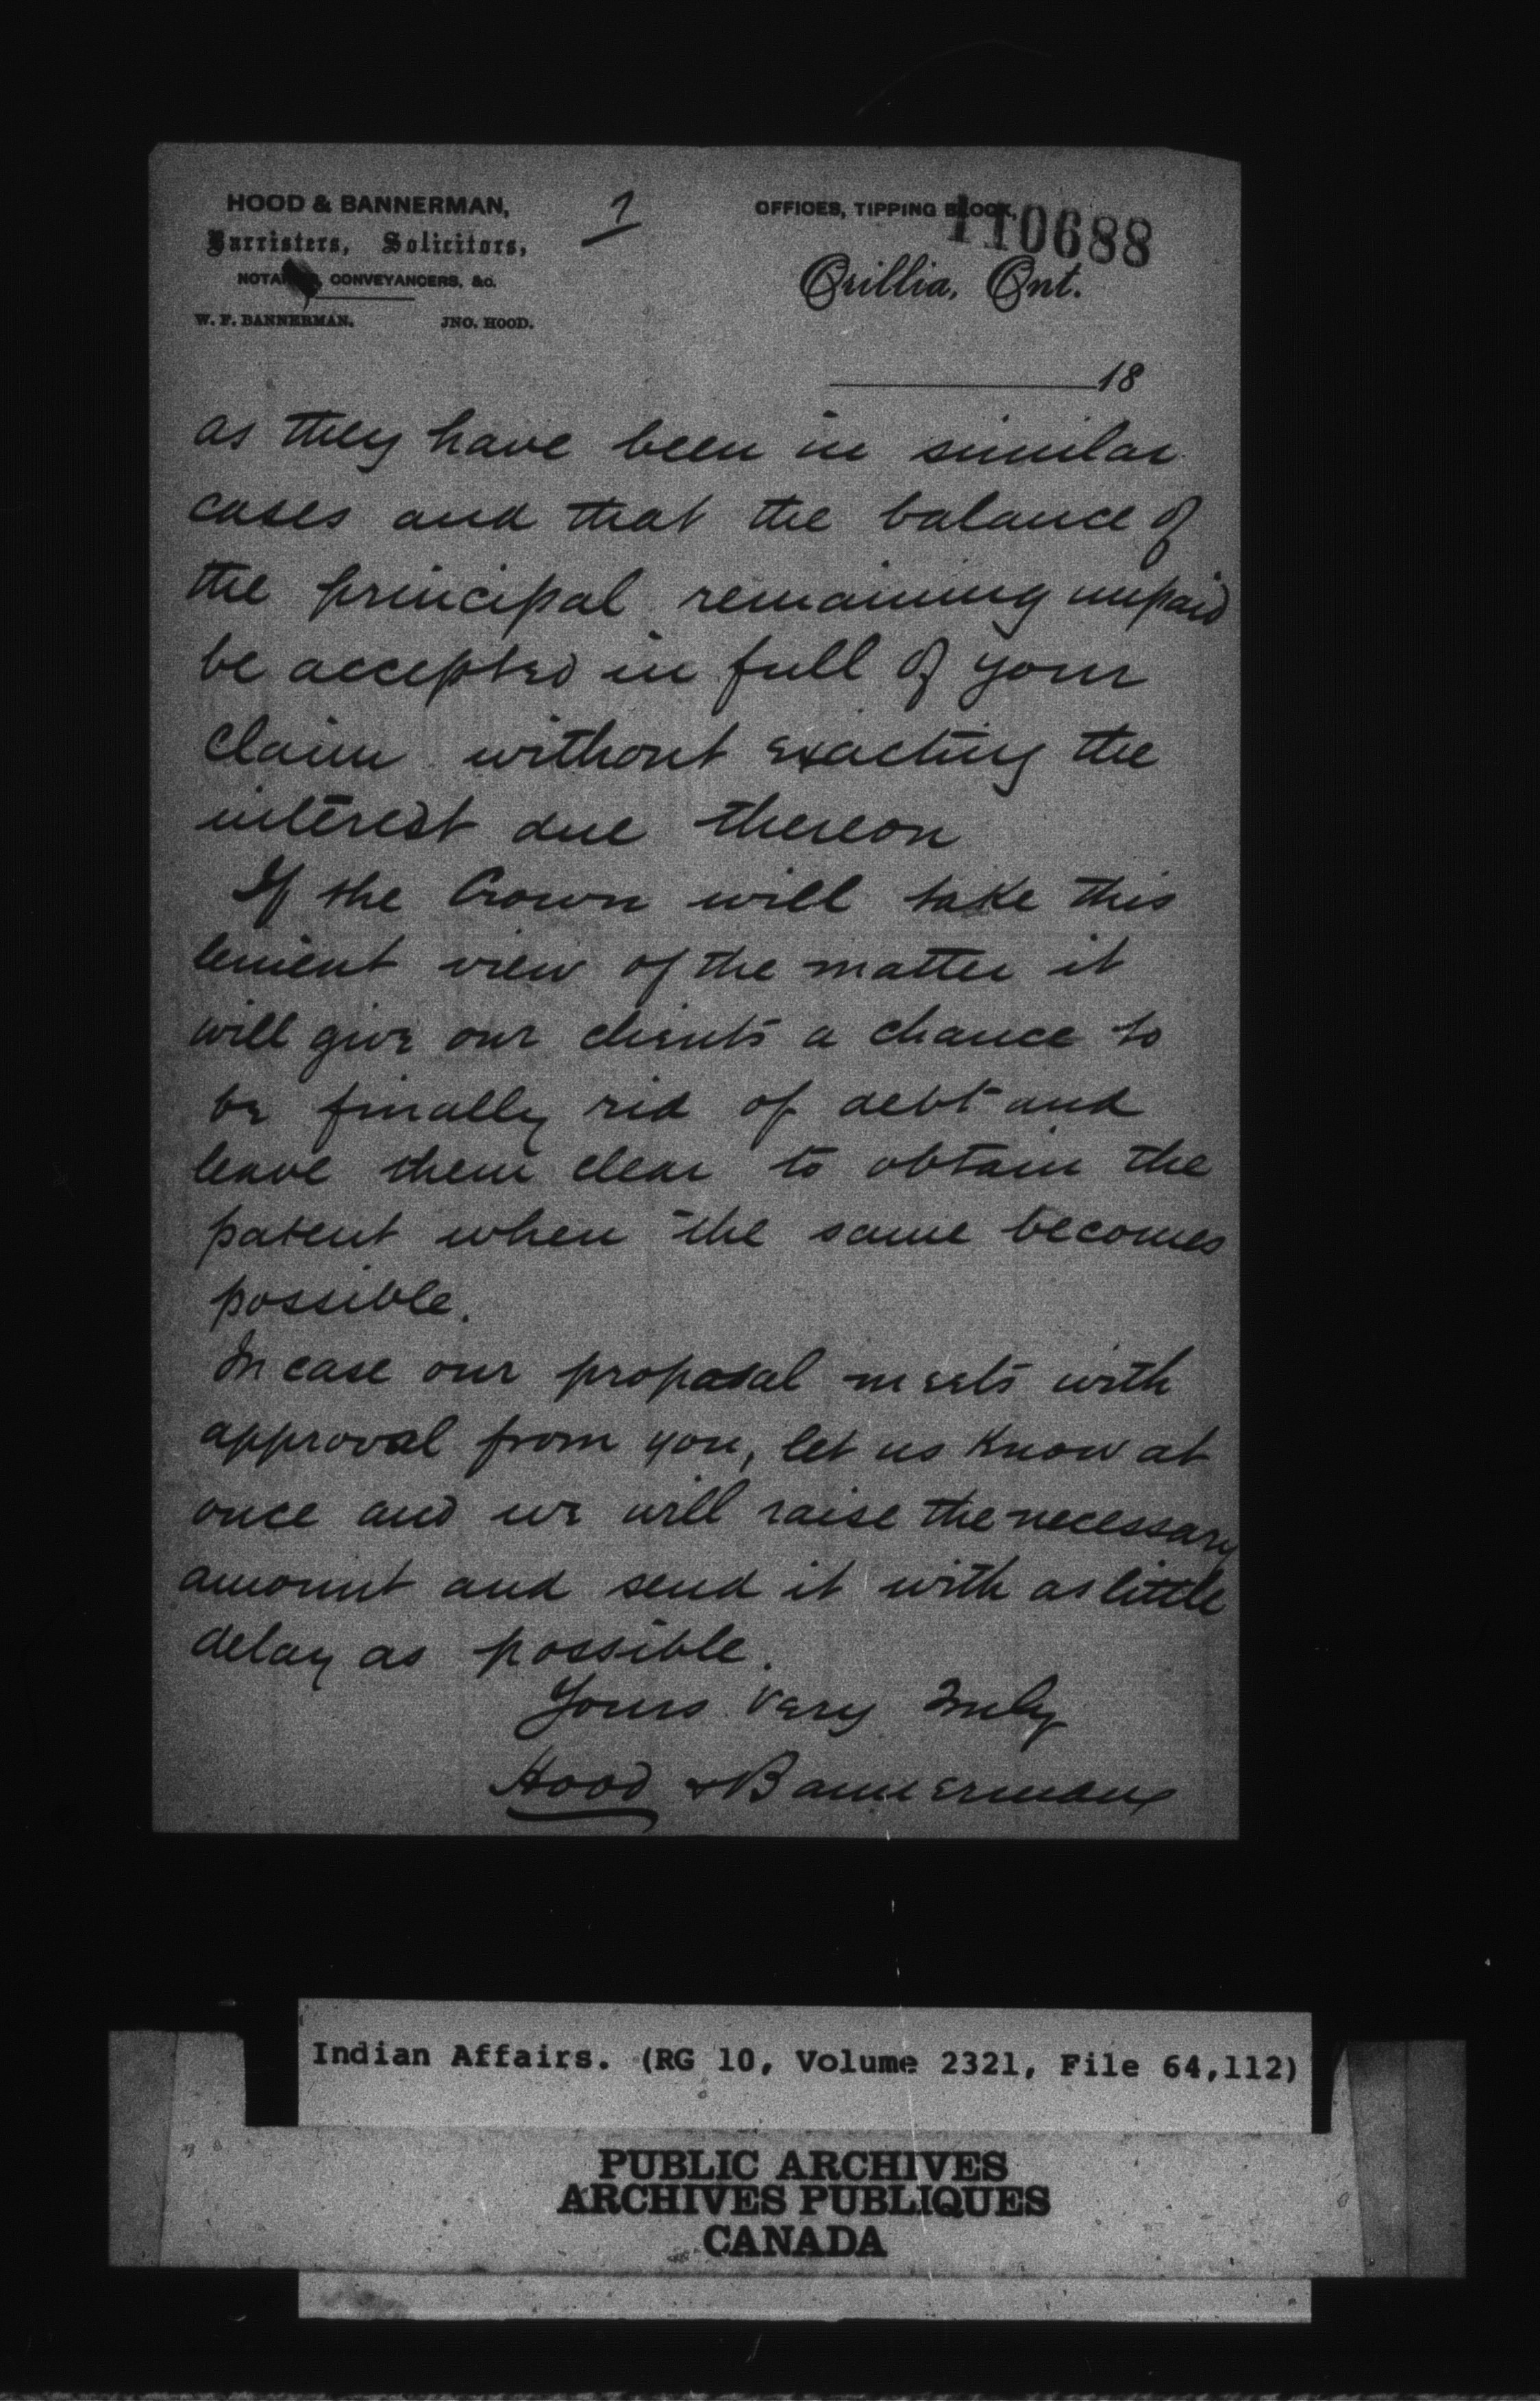 HOOD & BANNERMAN,
Barristers, Solicitors,
CONVEYANCERS, &c.
W. F. BANNERMAN. JNO. HOOD.
OFFICES, TIPPING BLOCK,
110688
Orillia, Ont.
18
as they have been in similar
cases and that the balance of
the principal remaining unpaid
be accepted in full of your
claim without exacting the
interest due thereon
If the Crown will take this
lenient view of the matter it
will give our clients a chance to
be finally rid of debt and
leave them clear to obtain the
patent when the same becomes
possible.
In case our proposal meets with
approval from you, let us know at
once and we will raise the necessary
amount and send it with as little
delay as possible.
Yours Very Truly
Hood & Bannerman
Indian Affairs. (RG 10, Volume 2321, File 64,112)
PUBLIC ARCHIVES
ARCHIVES PUBLIQUES
CANADA